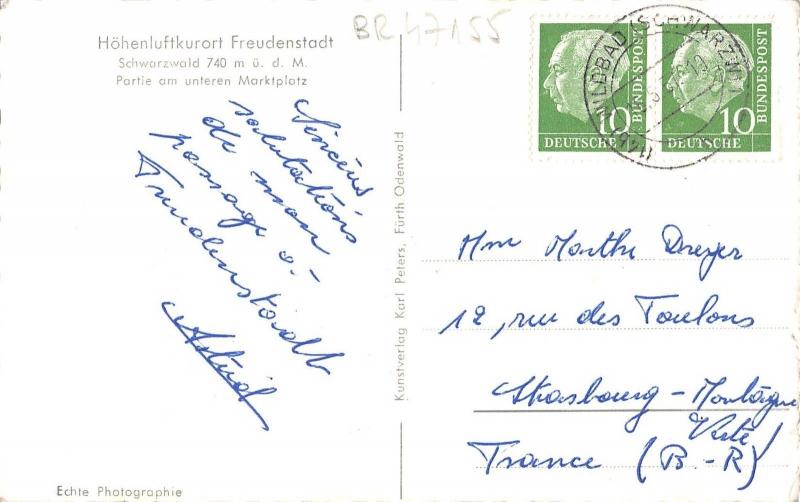 BR 47155
Höhenluftkurort Freudenstadt
Schwarzwald 740 m ü. d. M.
Partie am unteren Marktplatz
Sincères
salutations
de mon
passage à
Freudenstadt
Astrid
Kunstverlag Karl Peters, Fürth Odenwald
Echte Photographie
10
DEUTSCHE
BUNDESPOST
10
DEUTSCHE
BUNDESPOST
WILDBAD (SCHWARZW)
Mme Marthe Dreyer
12, rue des Toulons
Strasbourg - Montagne
Verte
France (B-R)